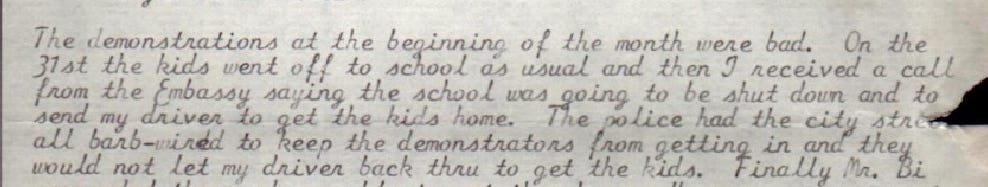 The demonstrations at the beginning of the month were bad. On the
31st the kids went off to school as usual and then I received a call
from the Embassy saying the school was going to be shut down and to
send my driver to get the kids home. The police had the city
all barb-wired to keep the demonstrators from getting in and they
would not let my driver back thru to get the kids. Finally Mr. Bi